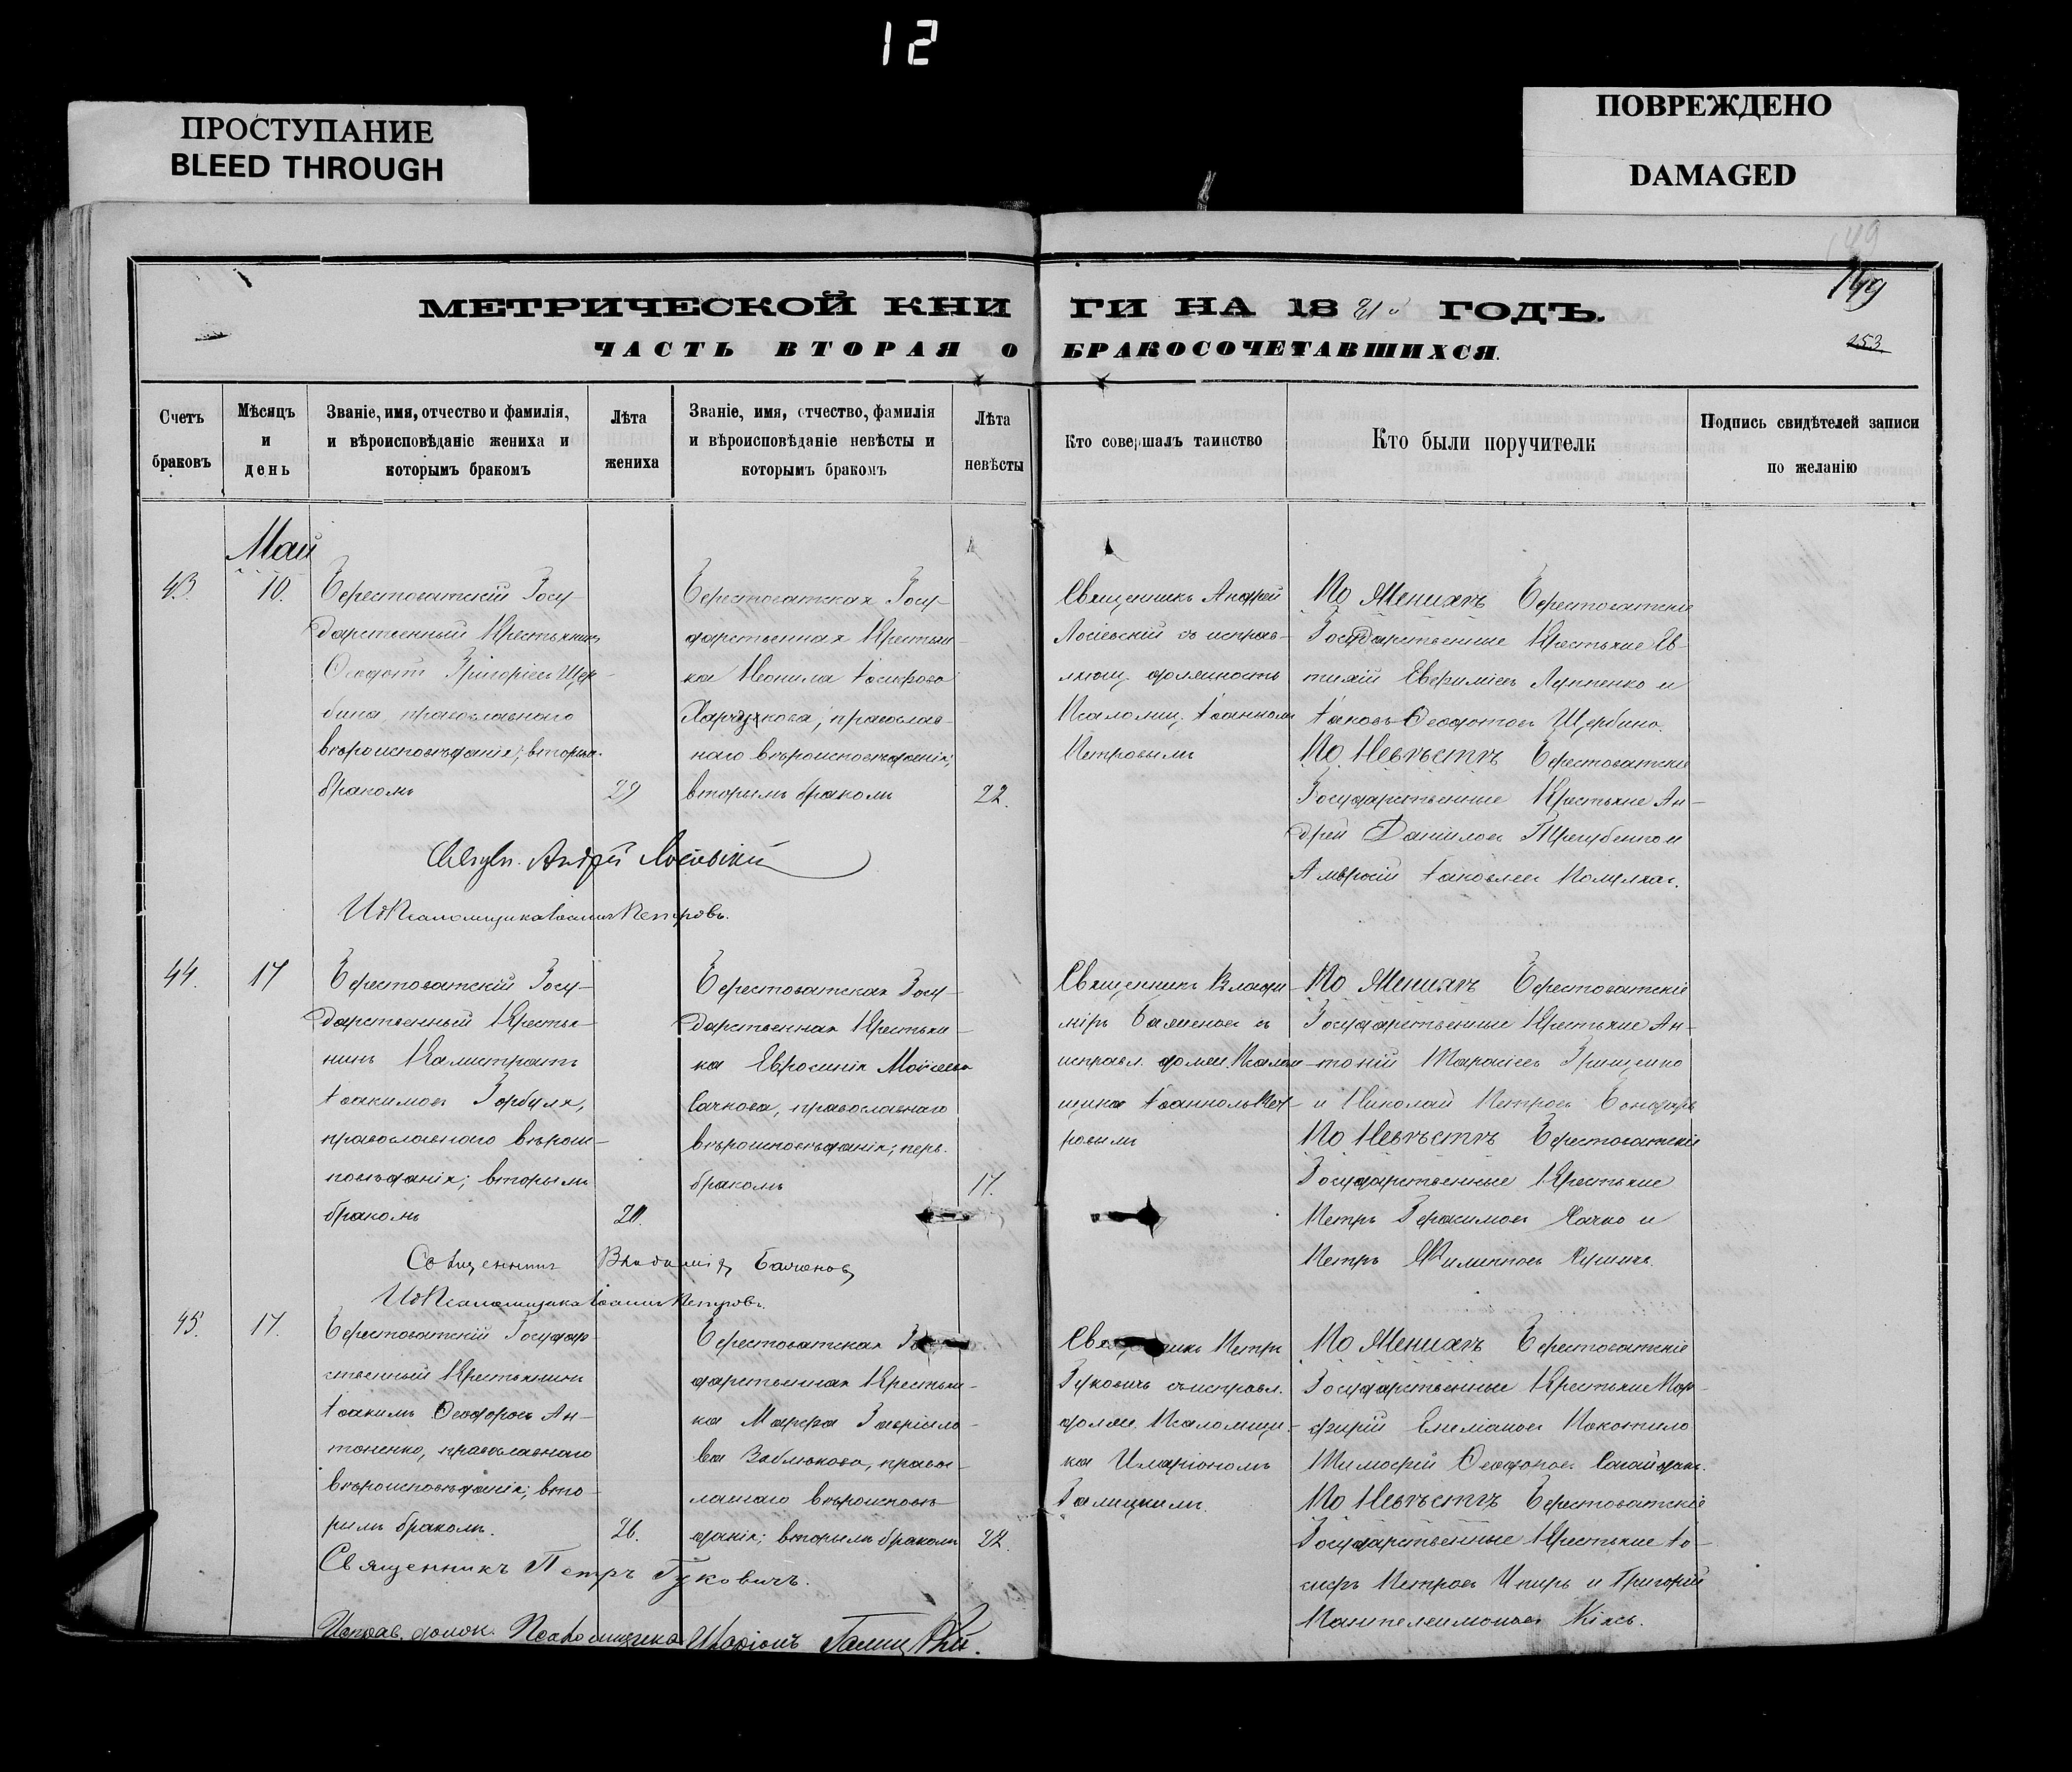 12
ПРОСТУПАНИЕ
BLEED THROUGH
ПОВРЕЖДЕНО
DAMAGED
149
253
МЕТРИЧЕСКОЙ КНИГИ НА 1881й ГОДЪ.
ЧАСТЬ ВТОРАЯ О БРАКОСОЧЕТАВШИХСЯ.
Счетъ браковъ
Мѣсяцъ и день
Званіе, имя, отчество и фамилія, и вѣроисповѣданіе жениха и которымъ бракомъ
Лѣта жениха
Званіе, имя, отчество, фамилія и вѣроисповѣданіе невѣсты и которымъ бракомъ
Лѣта невѣсты
Кто совершалъ таинство
Кто были поручители
Подпись свидѣтелей записи по желанію
Май
43. 10.
Берестоватскій Госу-
дарственный Крестьянинъ
Ѳеодотъ Григоріевъ Щер-
бина, православнаго
вѣроисповѣданія; вторым.
бракомъ
29
Берестоватская Госу-
дарственная Крестьян-
ка Неонила Іосифова
православ-
наго вѣроисповѣданія;
вторымъ бракомъ
22.
Священникъ Андрей
Лосіевскій съ исправ-
ляющ. должность
Псаломщ. Іоанномъ
Петровымъ
По Женихѣ Берестоватскіе
Государственные Крестьяне Ев-
тихій Евфиміевъ и
Іаковъ Ѳеодотовъ Щербина.
По Невѣстѣ Берестоватскіе
Государственные Крестьяне Ан-
дрей Даніиловъ Трегубенко и
Амвросій Іаковлевъ
Священ. Андрей Лосіевскій
ИдПсаломщика Іоаннъ Петровъ.
44. 17
Берестоватскій Госу-
дарственный Крестья-
нинъ Калистратъ
Іоакимовъ Горбуля,
православнаго вѣроис-
повѣданія; вторымъ
бракомъ
Берестоватская Госу-
дарственная Крестьян-
ка Евфросинія Моисеева
православнаго
вѣроисповѣданія; перв.
бракомъ
17.
Священникъ Влади-
міръ Баженовъ съ
исправл. должн. Псалом-
щика Іоанномъ Пет-
ровымъ
По Женихѣ Берестоватскіе
Государственные Крестьяне Ан-
тоній Тарасіевъ Грищенко
и Николай Петровъ Бондарь
По Невѣстѣ Берестоватскіе
Государственные Крестьяне
Петръ Герасимовъ и
Петръ Филипповъ
Священникъ Владиміръ Баженовъ
ИдПсаломщика Іоаннъ Петровъ.
45. 17.
Берестоватскій Государ-
ственный Крестьянинъ
Іоакимъ Ѳеодоровъ Ан-
тоненко, православнаго
вѣроисповѣданія; вто-
рымъ бракомъ.
26.
Берестоватская
дарственная Крестьян-
ка Марфа Гавріило-
ва православ-
наго вѣроисповѣ-
данія; вторымъ бракомъ
22.
Петръ
Гуковичъ съ исправл.
должн. Псаломщи-
ка Иларіономъ
Галицкимъ.
По Женихѣ Берестоватскіе
Государственные Крестьяне Пор-
фирій Емеліановъ Покотило
Тимофей Ѳеодоровъ
По Невѣстѣ Берестоватскіе
Государственные Крестьяне Іо-
сифъ Петровъ и Григорій
Пантелеимоновъ
Священникъ Петръ Гуковичъ.
Исправ. должн. Псаломщика Иларіонъ Галицкій.